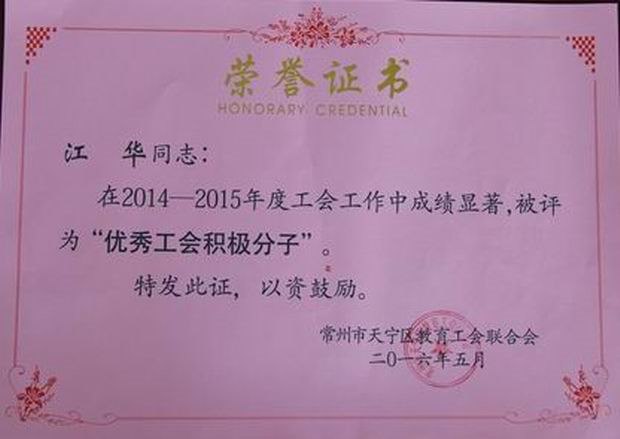 荣誉证书
HONORARY CREDENTIAL
江 华同志：
在2014—2015年度工会工作中成绩显著,被评
为“优秀工会积极分子”。
特发此证，以资鼓励。
常州市天宁区教育工会联合会
二〇一六年五月